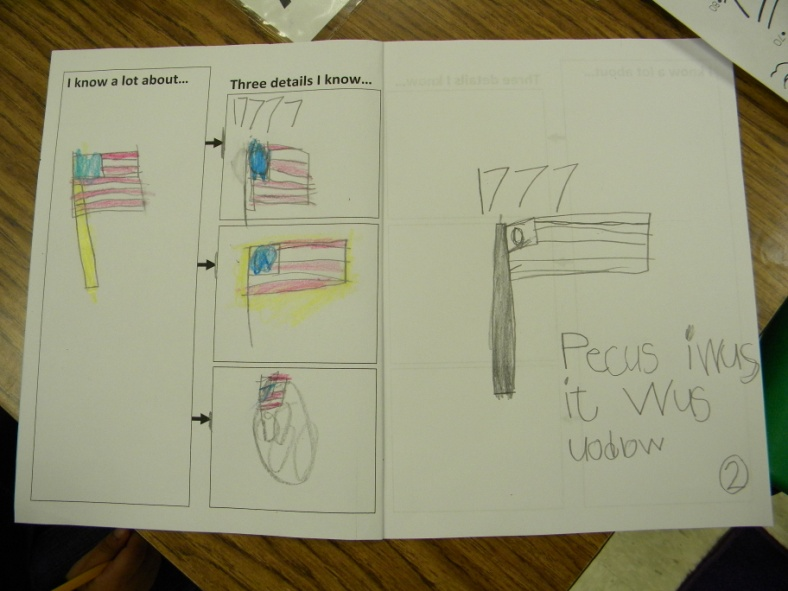 I know a lot about...
Three details I know...
1777
1777
Pecus iwus
it wus
2